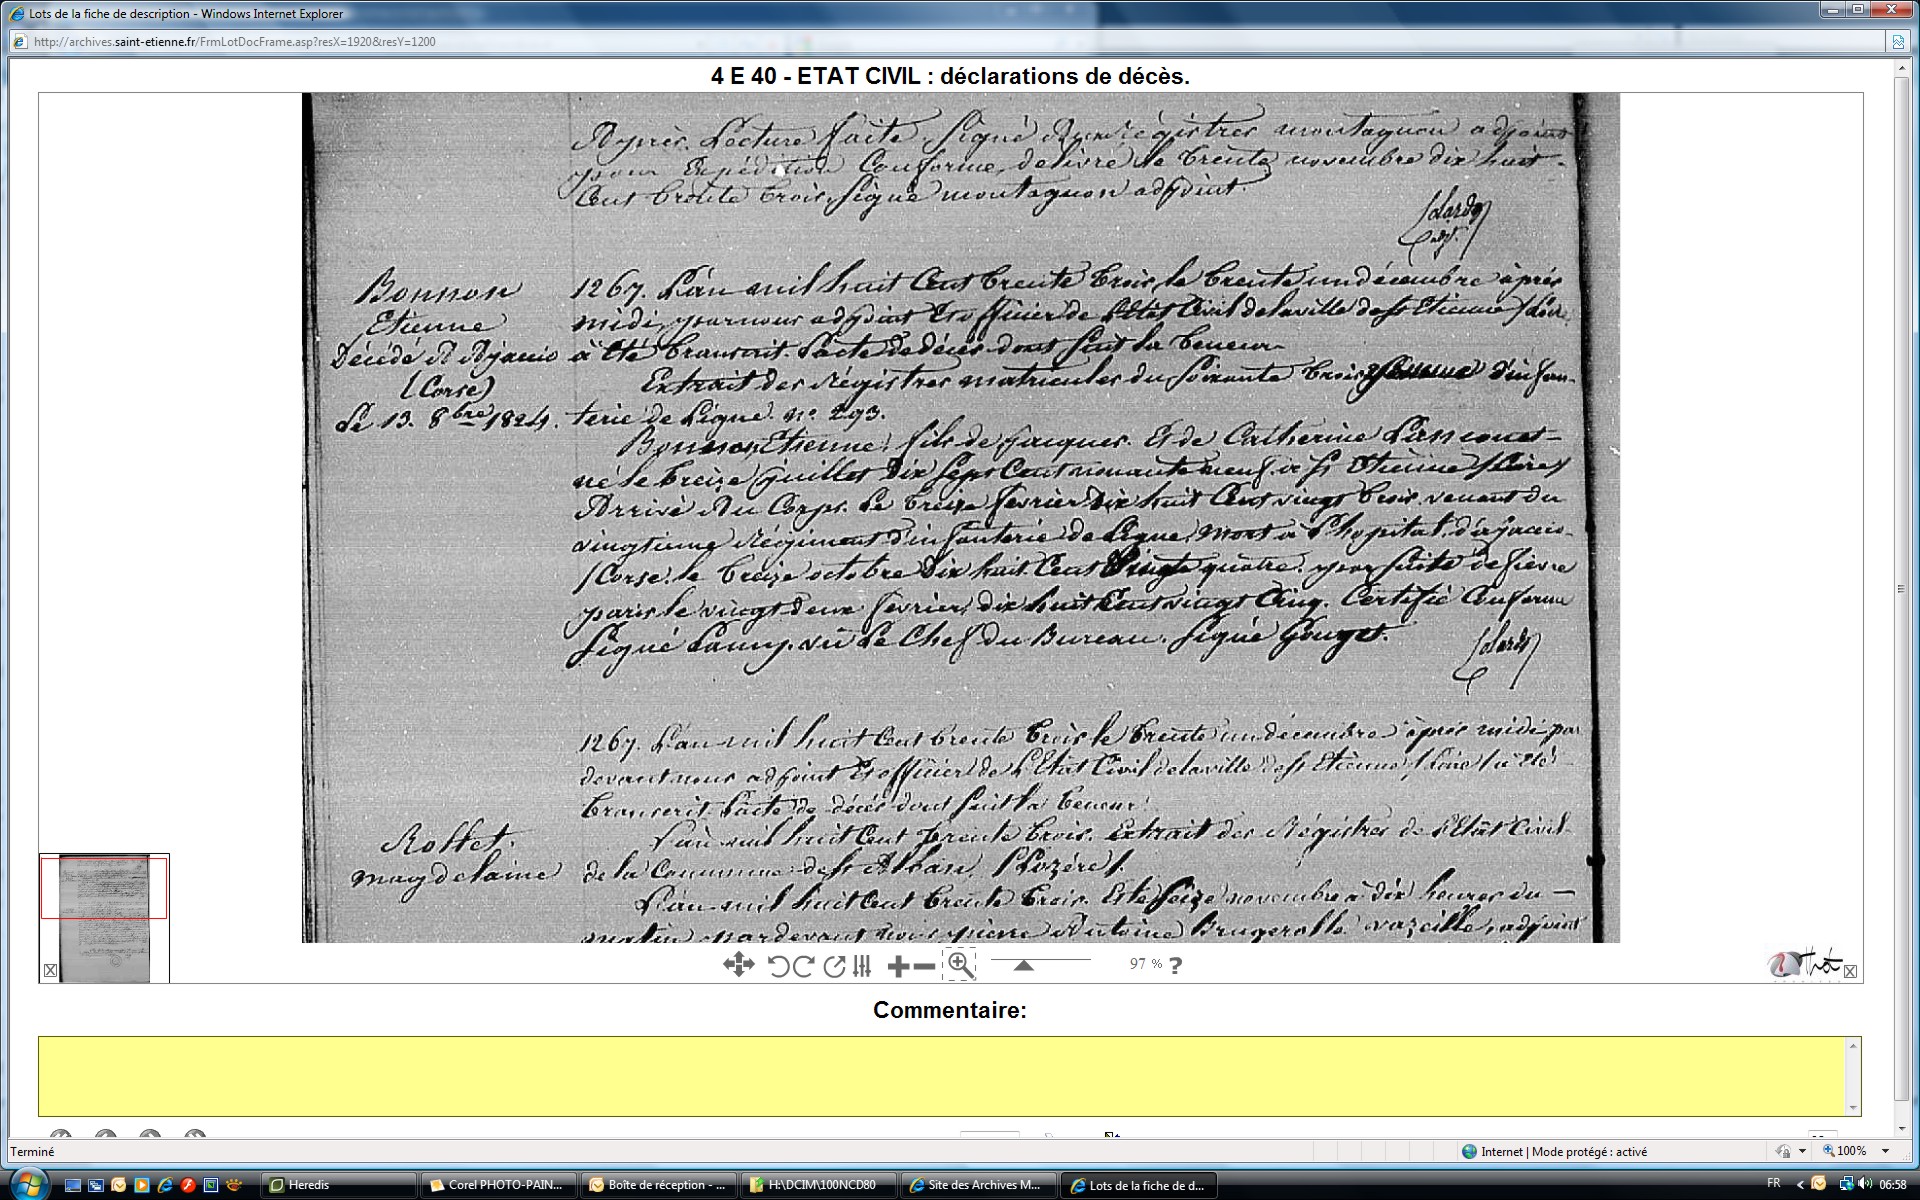 Lots de la fiche de description - Windows Internet Explorer
http://archives.saint-etienne.fr/FrmLotDocFrame.asp?resX=1920&resY=1200
4 E 40 - ETAT CIVIL : déclarations de décès.
Après Lecture faite Signé Aux régistres montagnon adjoint
pour Expédition Conforme, delivré le trente novembre dix huit
Cent trente trois, Signé montagnon adjoint
Bonnon
Etienne
Décédé A Ajaccio
(Corse)
Le 13. 8bre 1824.
1267. L'an mil huit Cent trente trois, le trente un décembre après
midi, par nous adjoint Et officier de L'Etat Civil de la ville de St Etienne /Loire/
à été transcrit L'acte de décès dont Suit la teneur
Extrait des Régistres matricules du Soixante trois d'infan-
terie de Ligne. no. 293.
Bonnon, Etienne, fils de Jacques. Et de Catherine
né le treize Juillet Dix Sept Cent nonante neuf, à St Etienne /Loire/
Arrivé Au Corps. Le treize fevrier Dix huit Cent vingt trois, venant du
vingtieme Régiment d'infanterie de Ligne, Mort à l'hopital d'ajaccio
/Corse. le treize octobre Dix huit Cent Vingt quatre. par Suite de fievre
paris le vingt deux fevrier, dix huit Cent vingt Cinq. Certifié Conforme
Signé vû Le Chef Du Bureau. Signé Gouget.
1267. L'an mil huit Cent trente trois le trente un décembre après midi par
devant nous adjoint Et officier de L'Etat Civil de la ville de St Etienne /Loire/ à été
transcrit L'acte de décès dont Suit la teneur
Rottet.
magdelaine
L'an mil huit Cent trente trois. Extrait des Régistres de l'Etat Civil
de la Commune de St Alban /Lozére/.
L'an mil huit Cent trente trois. Et le Seize novembre à dix heures du
matin, pardevant nous pierre Antoine Brugerolle vazeille, adjoint
97 % ?
Thot
Commentaire:
Terminé
Internet | Mode protégé : activé
100%
Heredis
Corel PHOTO-PAIN...
Boîte de réception - ...
H:\DCIM\100NCD80
Site des Archives M...
Lots de la fiche de d...
FR
06:58